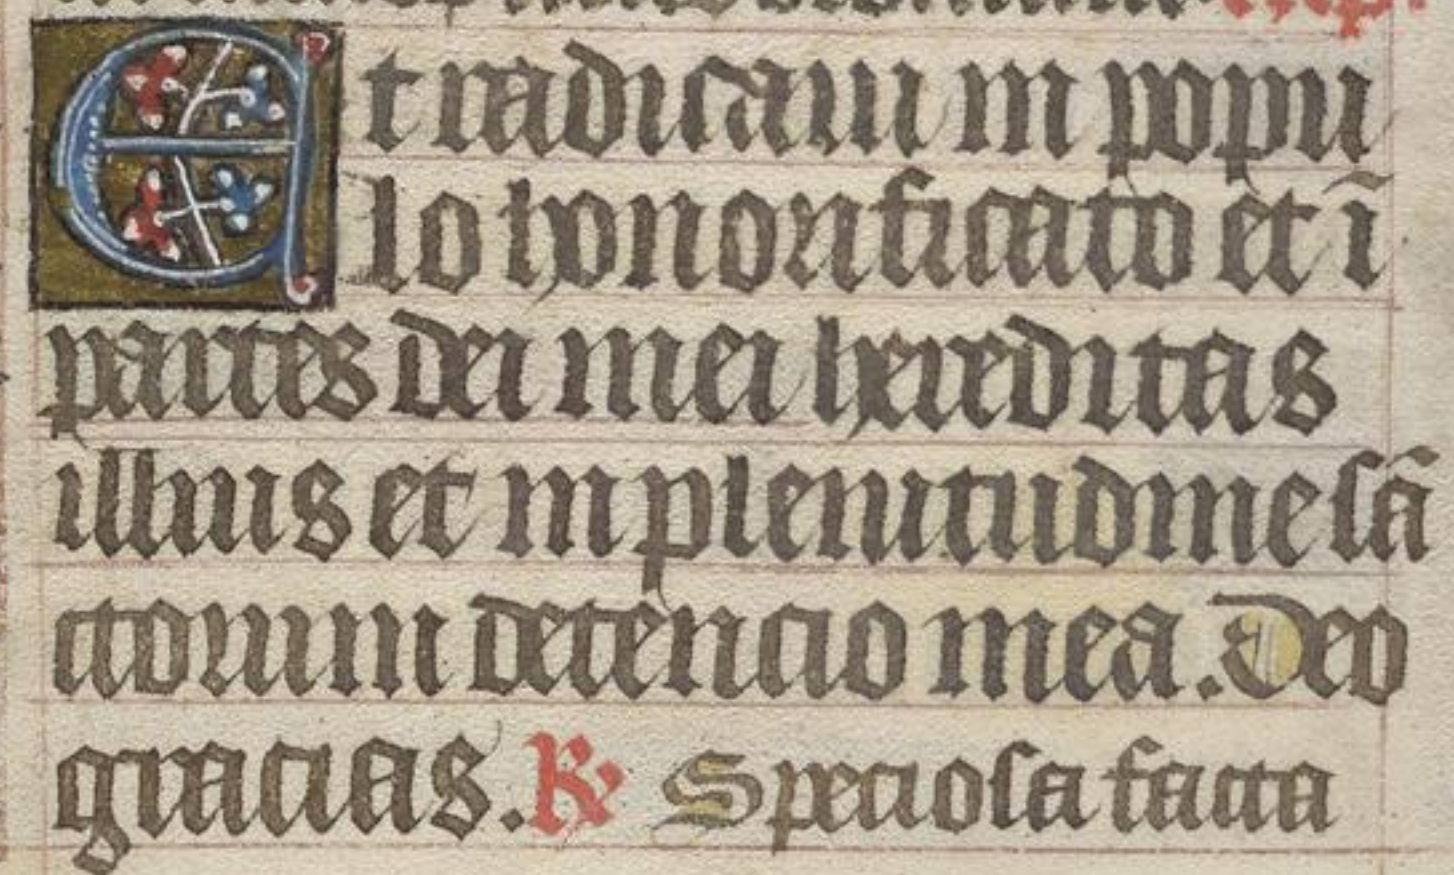 Et radicaui in popu
lo honorificato et ī
partes dei mei hereditas
illius et in plenitudine sā
ctorum detencio mea. Deo
gracias. R Speciosa facta